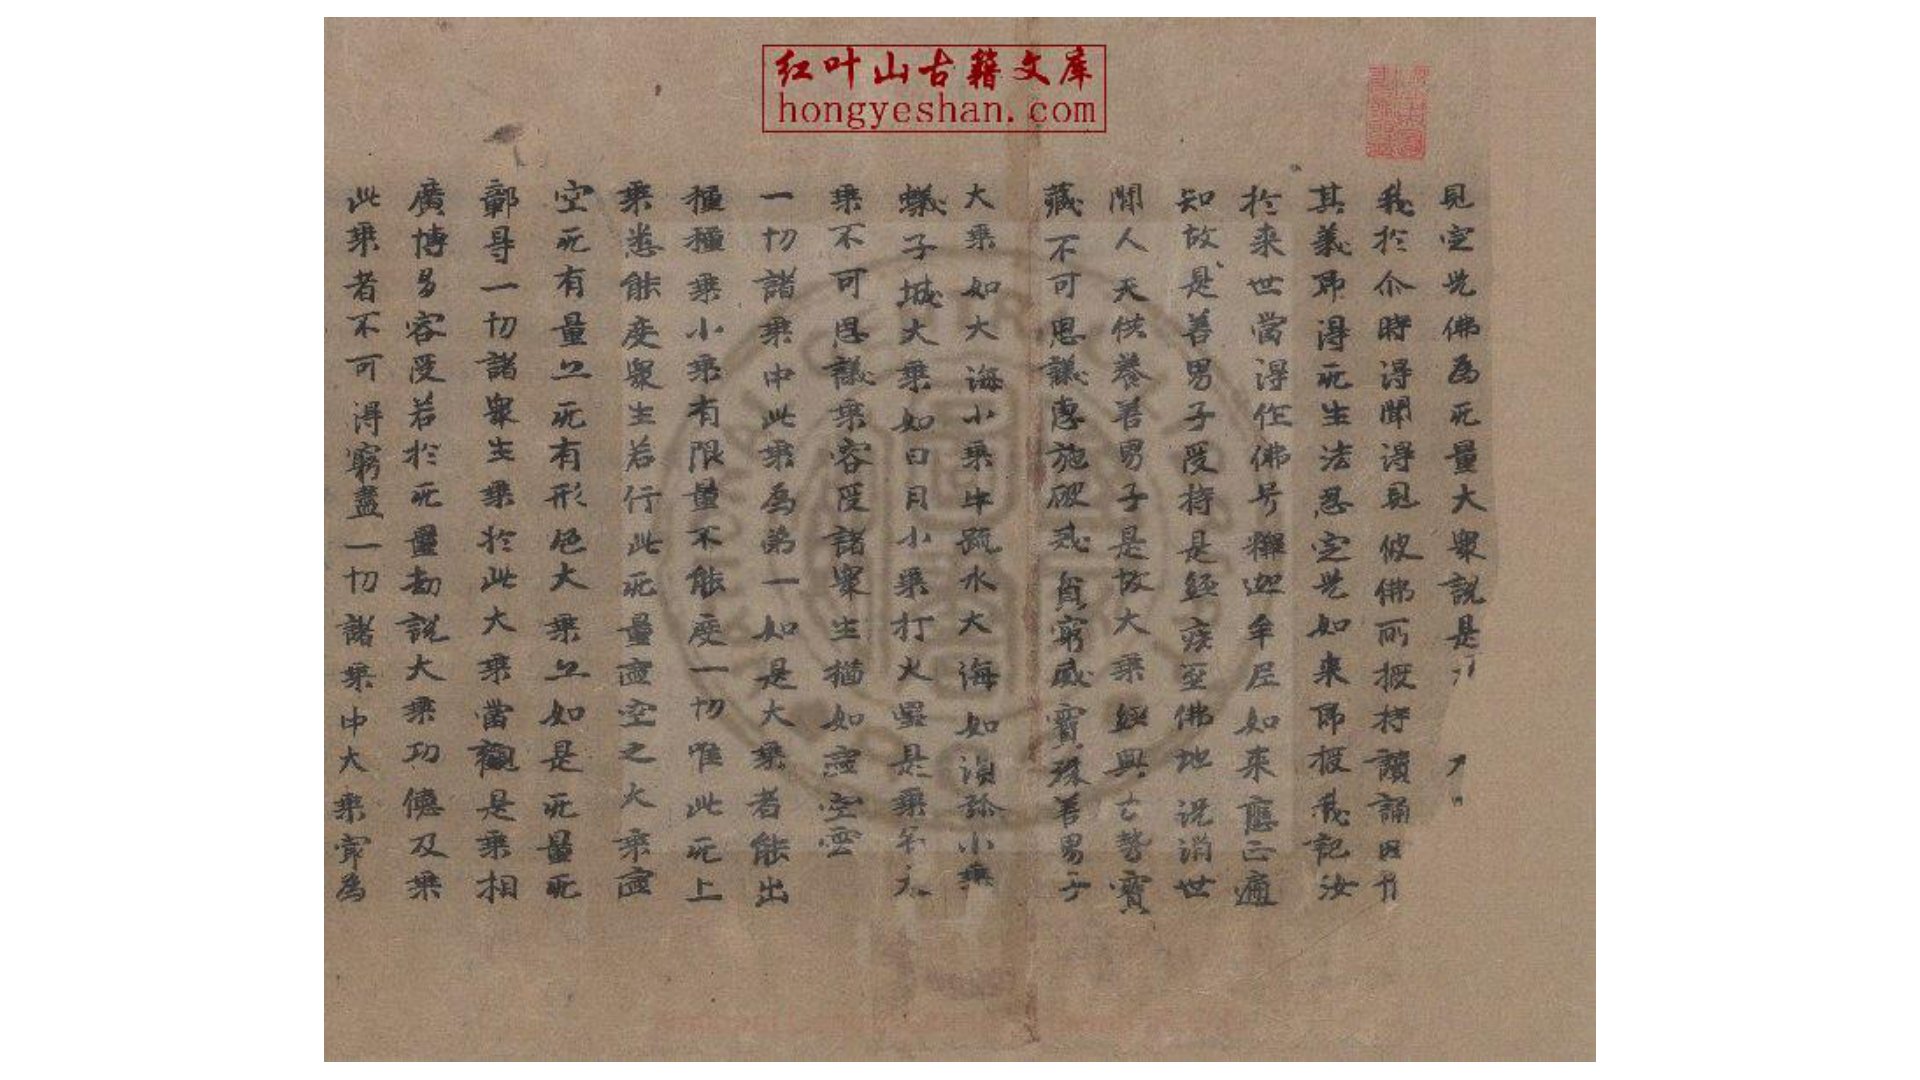 红叶山古籍文库
hongyeshan.com
見定光佛為无量大衆說是
我於尒時得聞得見彼佛所授持讀誦
其義即得无生法忍定光如來即授我記汝
於来世當得作佛号釋迦牟尼如来應正遍
知故是善男子受持是經疾至佛地況消世
間人天供養善男子是故大乘經典亡勢寶
藏不可思議惠施破戒貧窮威寶殊善男子
大乘如大海小乘牛蹄水大海如湏弥小乘
蟻子城大乘如日月小乘打火星是乘名大
乘不可思議乘容受諸衆生猶如虛空雲
一切諸乘中此乘為弟一如是大乘者能出
種種乘小乘有限量不能度一切唯此无上
乘悉能度衆生若行此无量虛空之大乘虛
空无有量亦无有形色大乘亦如是无量无
鄣㝵一切諸衆生乘於此大乘當觀是乘相
廣博多容受若於无量劫說大乘功德及乘
此乘者不可得窮盡一切諸乘中大乘寂為